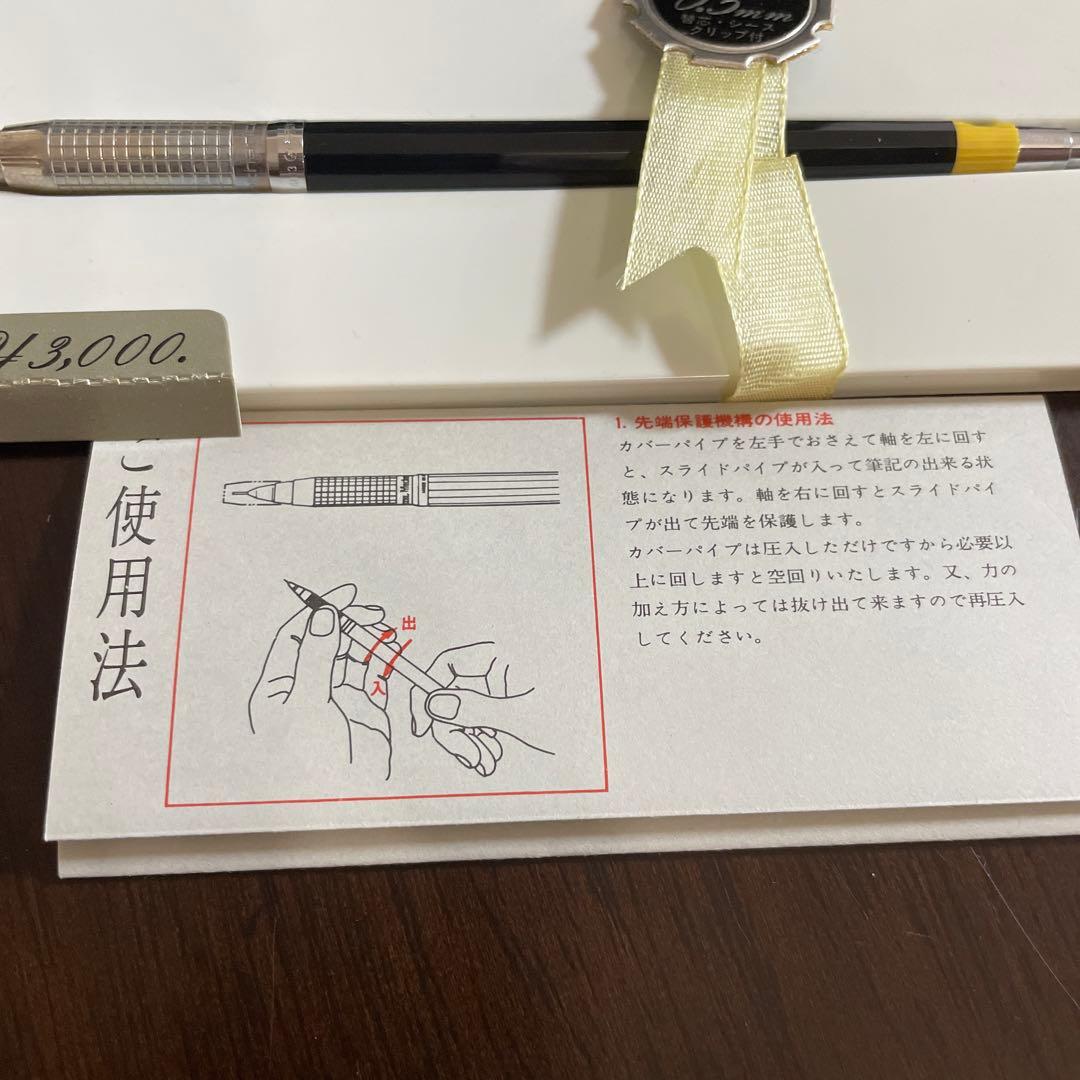 0.5mm
替芯・シース
クリップ付
¥3,000.
ご使用法
出
入
1. 先端保護機構の使用法
カバーパイプを左手でおさえて軸を左に回す
と、スライドパイプが入って筆記の出来る状
態になります。軸を右に回すとスライドパイ
プが出て先端を保護します。
カバーパイプは圧入しただけですから必要以
上に回しますと空回りいたします。又、力の
加え方によっては抜け出て来ますので再圧入
してください。